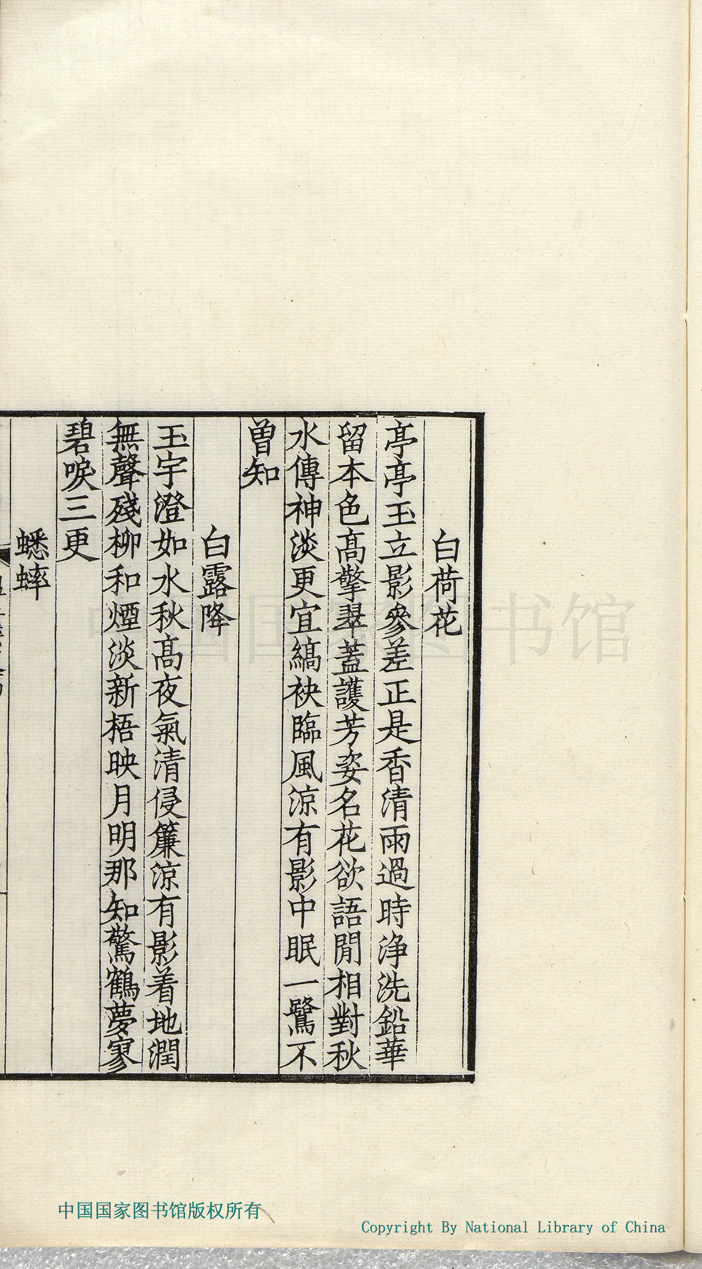 白荷花
亭亭玉立影參差正是香清雨過時淨洗鉛華
留本色高擎翠蓋護芳姿名花欲語閒相對秋
水傳神淡更宜縞袂臨風涼有影中眠一鷺不
曽知
白露降
玉宇澄如水秋高夜氣清侵簾涼有影着地潤
無聲殘柳和煙淡新梧映月明那知驚鶴夢寥
碧唳三更
蟋蟀
中国国家图书馆
中国国家图书馆版权所有
Copyright By National Library of China